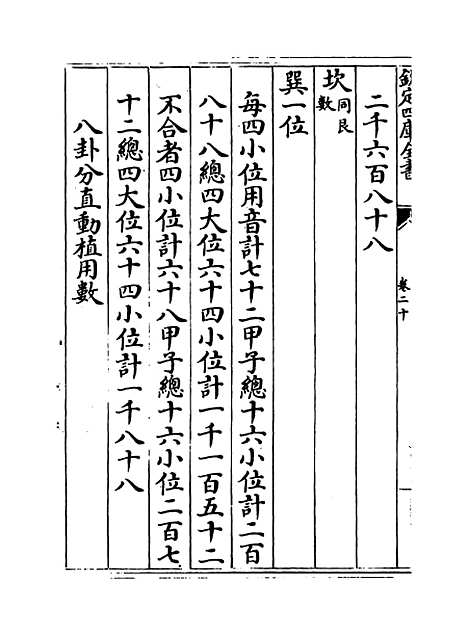 欽定四庫全書
卷二十
二千六百八十八
坎同艮數
巽一位
每四小位用音計七十二甲子總十六小位計二百
八十八總四大位六十四小位計一千一百五十二
不合者四小位計六十八甲子總十六小位二百七
十二總四大位六十四小位計一千八十八
八卦分直動植用數